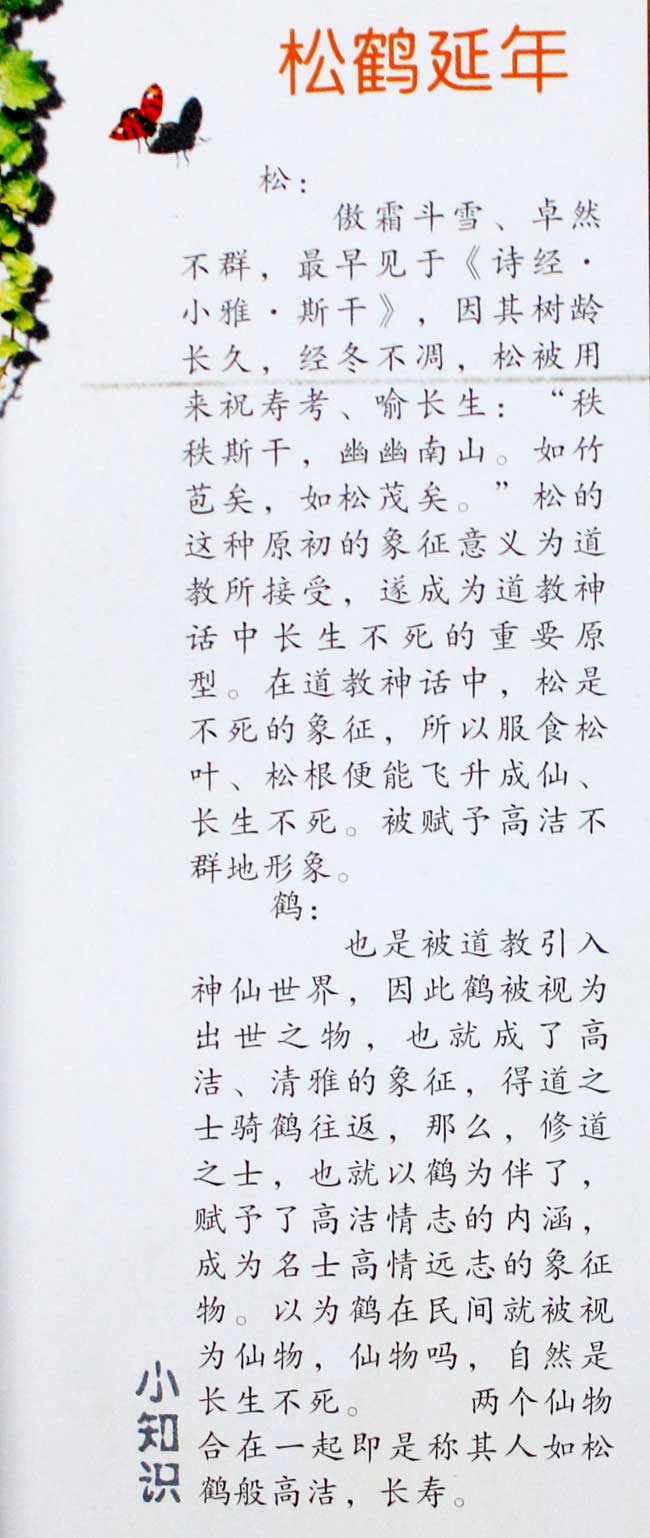 松鹤延年
松：
傲霜斗雪、卓然
不群，最早见于《诗经·
小雅·斯干》，因其树龄
长久，经冬不凋，松被用
来祝寿考、喻长生：“秩
秩斯干，幽幽南山。如竹
苞矣，如松茂矣。”松的
这种原初的象征意义为道
教所接受，遂成为道教神
话中长生不死的重要原
型。在道教神话中，松是
不死的象征，所以服食松
叶、松根便能飞升成仙、
长生不死。被赋予高洁不
群地形象。
鹤：
也是被道教引入
神仙世界，因此鹤被视为
出世之物，也就成了高
洁、清雅的象征，得道之
士骑鹤往返，那么，修道
之士，也就以鹤为伴了，
赋予了高洁情志的内涵，
成为名士高情远志的象征
物。以为鹤在民间就被视
为仙物，仙物吗，自然是
长生不死。 两个仙物
合在一起即是称其人如松
鹤般高洁，长寿。
小知识